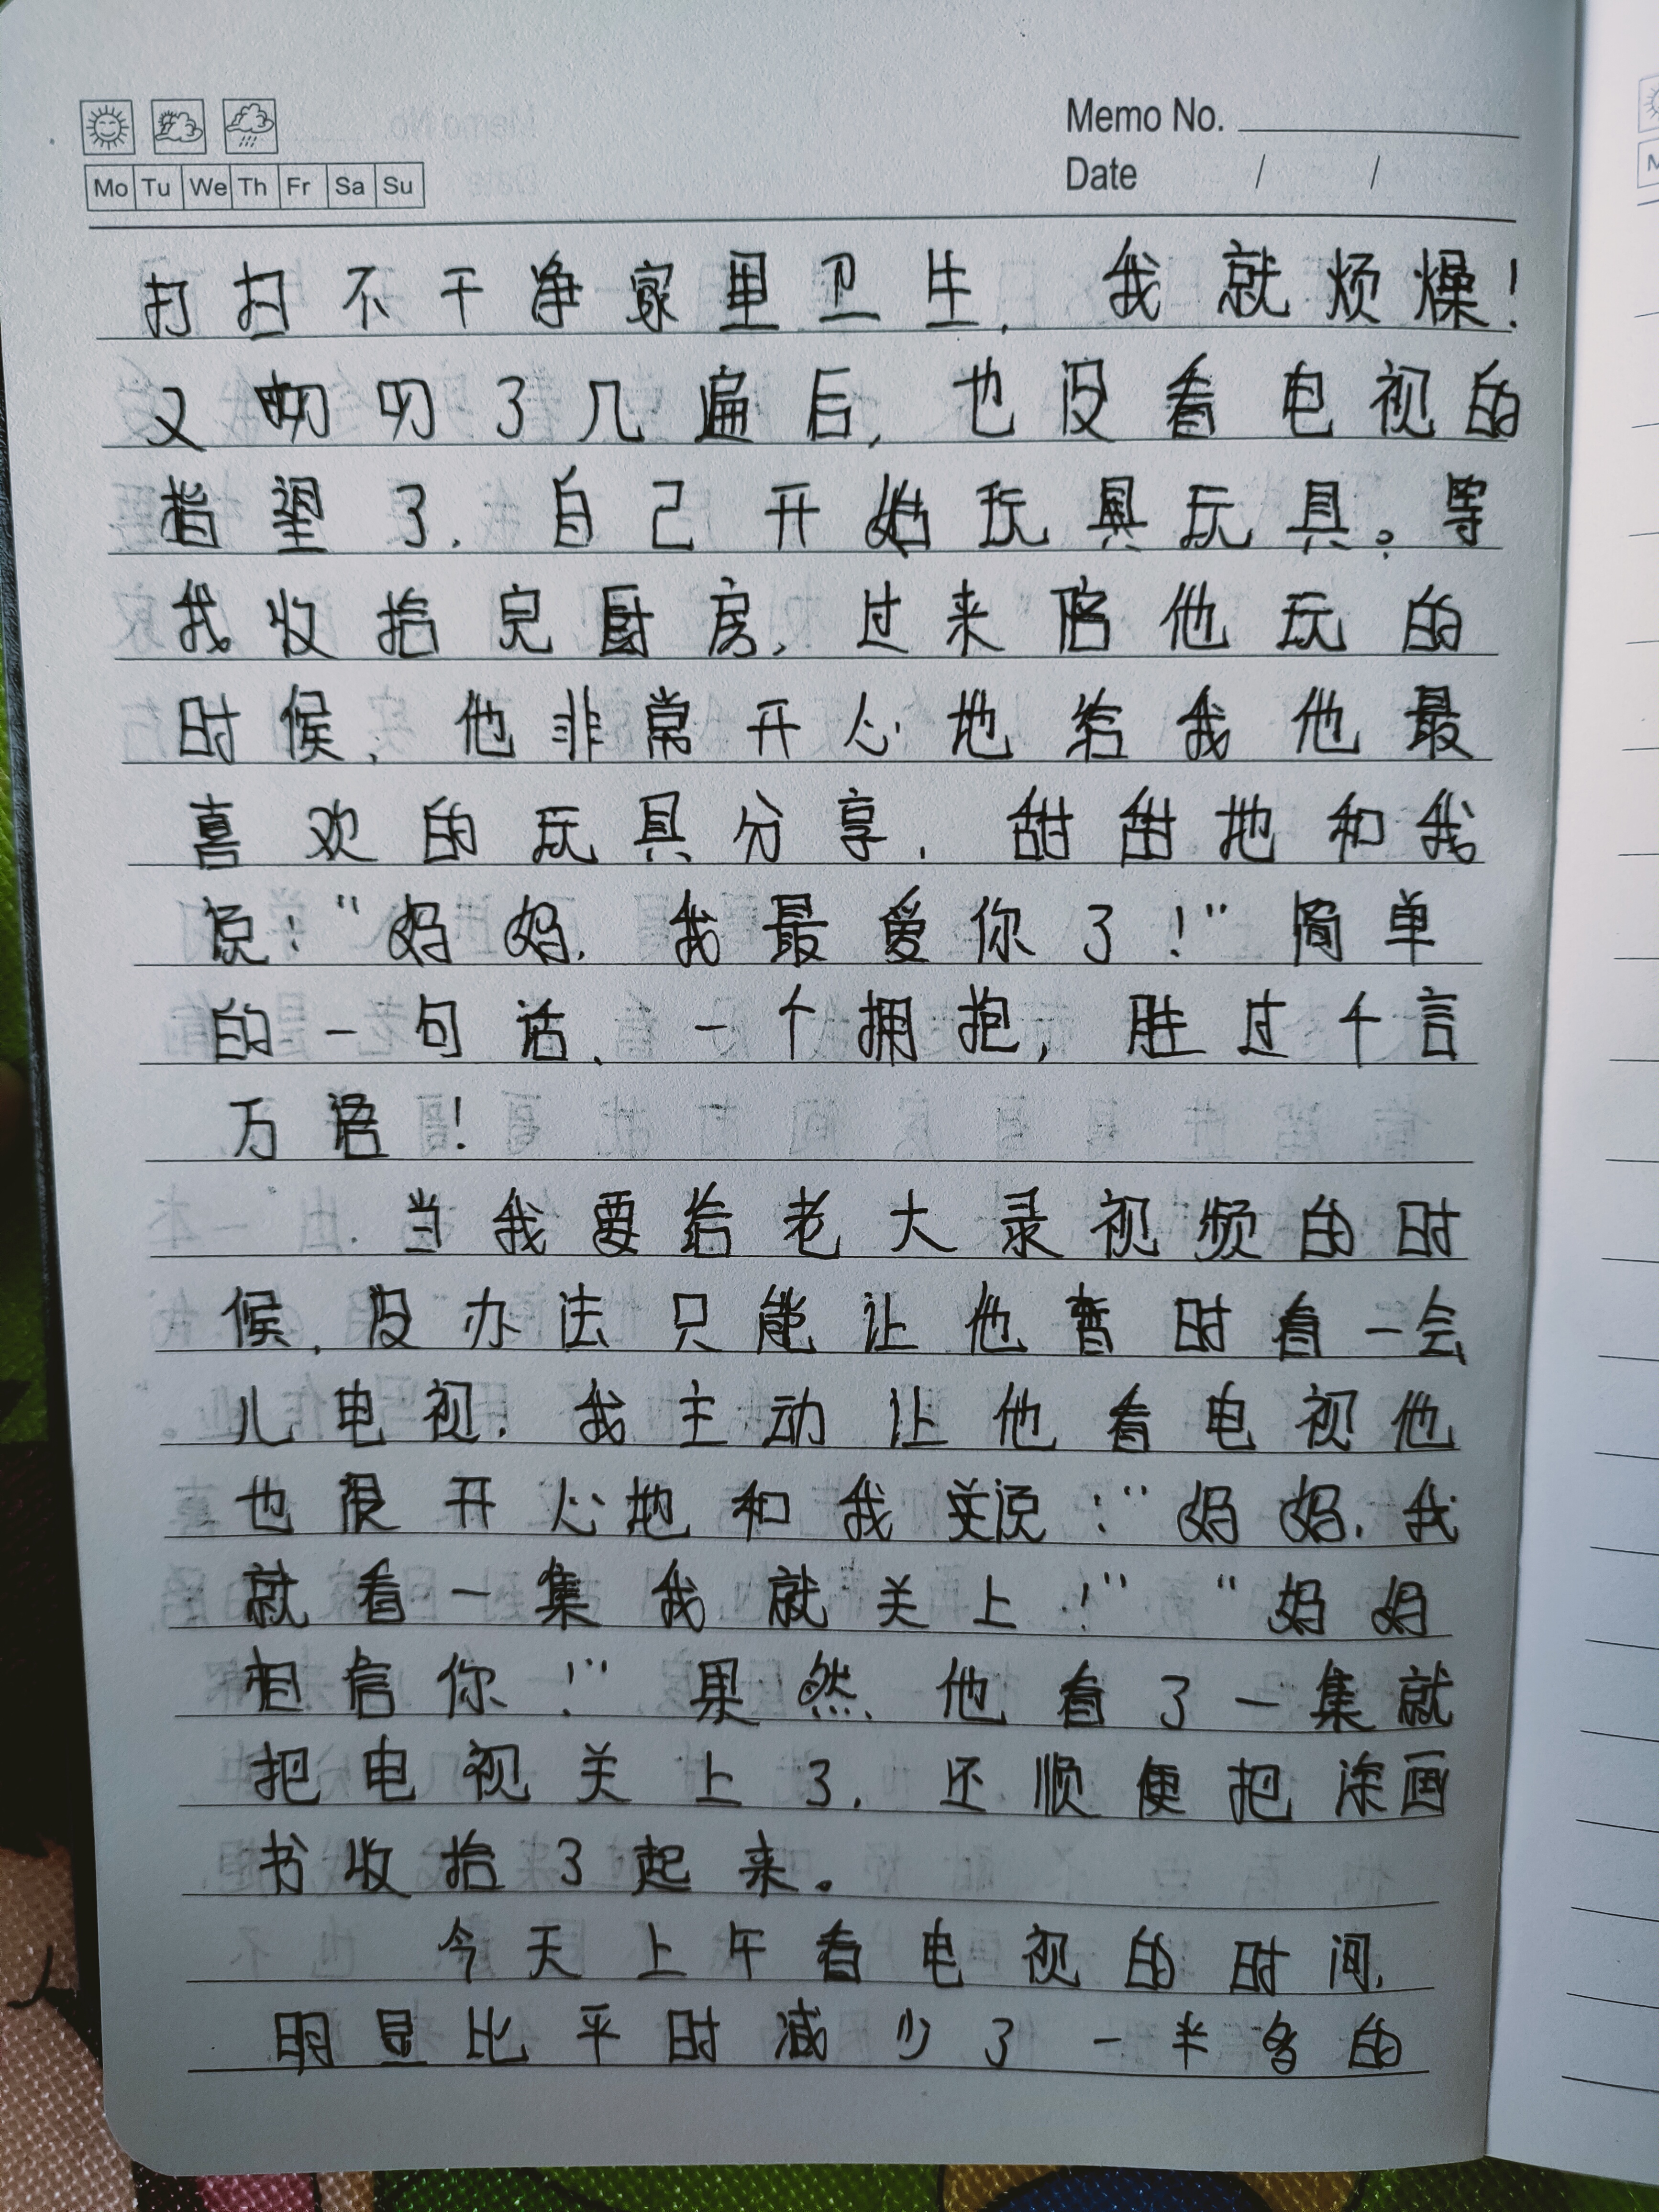 Memo No.
Mo Tu We Th Fr Sa Su
Date / /
打扫不干净家里卫生，我就烦燥！
又叨叨了几遍后，也没看电视的
指望了，自己开始玩具玩具。等
我收拾完厨房，过来陪他玩的
时候，他非常开心地给我他最
喜欢的玩具分享，甜甜地和我
说：“妈妈，我最爱你了！”简单
的一句话、一个拥抱，胜过千言
万语！
当我要给老大录视频的时
候，没办法只能让他暂时看一会
儿电视，我主动让他看电视他
也很开心地和我说：“妈妈，我
就看一集我就关上！”“妈妈
相信你！”果然，他看了一集就
把电视关上了，还顺便把涂画
书收拾了起来。
今天上午看电视的时间，
明显比平时减少了一半多的